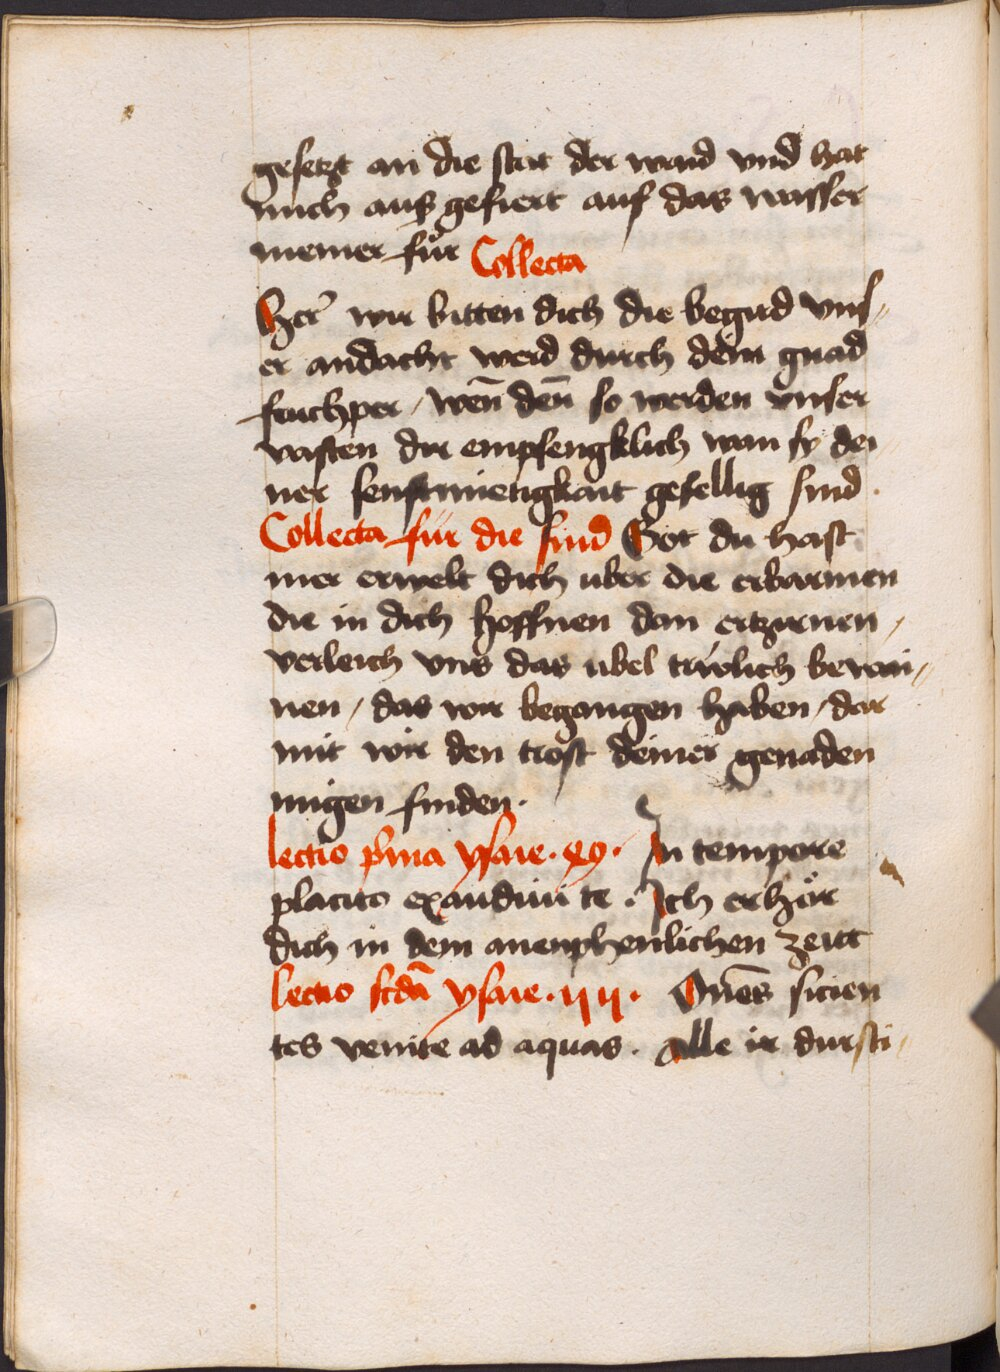 gesetzt an die stat der waid vnd hat
mich auß gefiert auf das wasser
meiner für Collecta
Her̄ wir bitten dich die begird vns⸗
er andacht werd durch dein gnad
fruchper / wen̄ den̄ so werden vnser
vasten dir empfengklich wan sy dei
ner senftmietigkait gefellig sind .
Collecta für die sind Got du hast
mer erwelt dich vber die erbarmen
die in dich hoffnen dan ertzürnen /
verleich vns das übel trwlich bewai⸗
nen / das wir begangen haben / dar
mit wir den trost deiner genaden
mügen finden .
lectio pr̄ma ysaie . 49 . In tempore
placito exaudiui te . Ich erhör
dich in dem anenphenlichen zeitt
lectio scd̄a ysaie . 55 . Om̄es sicien
tes venite ad aquas . Alle ir dursti⸗